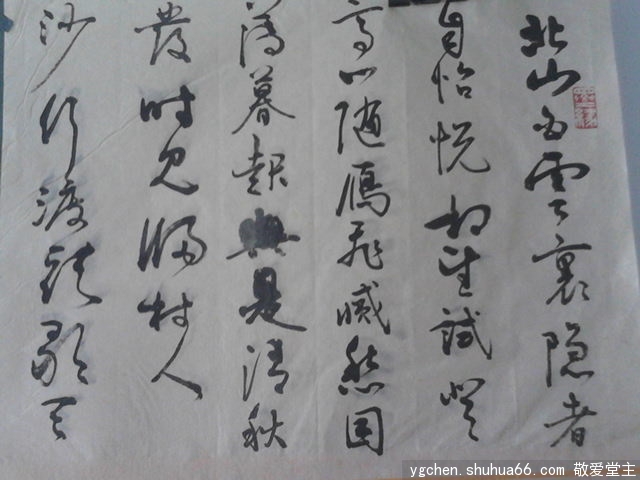 北山白雲裏隐者
自怡悦相望試登
高心随鴈飛滅愁因
薄暮起興是清秋
發时見歸村人
沙行渡頭歇天
ygchen.shuhua66.com 敬爱堂主